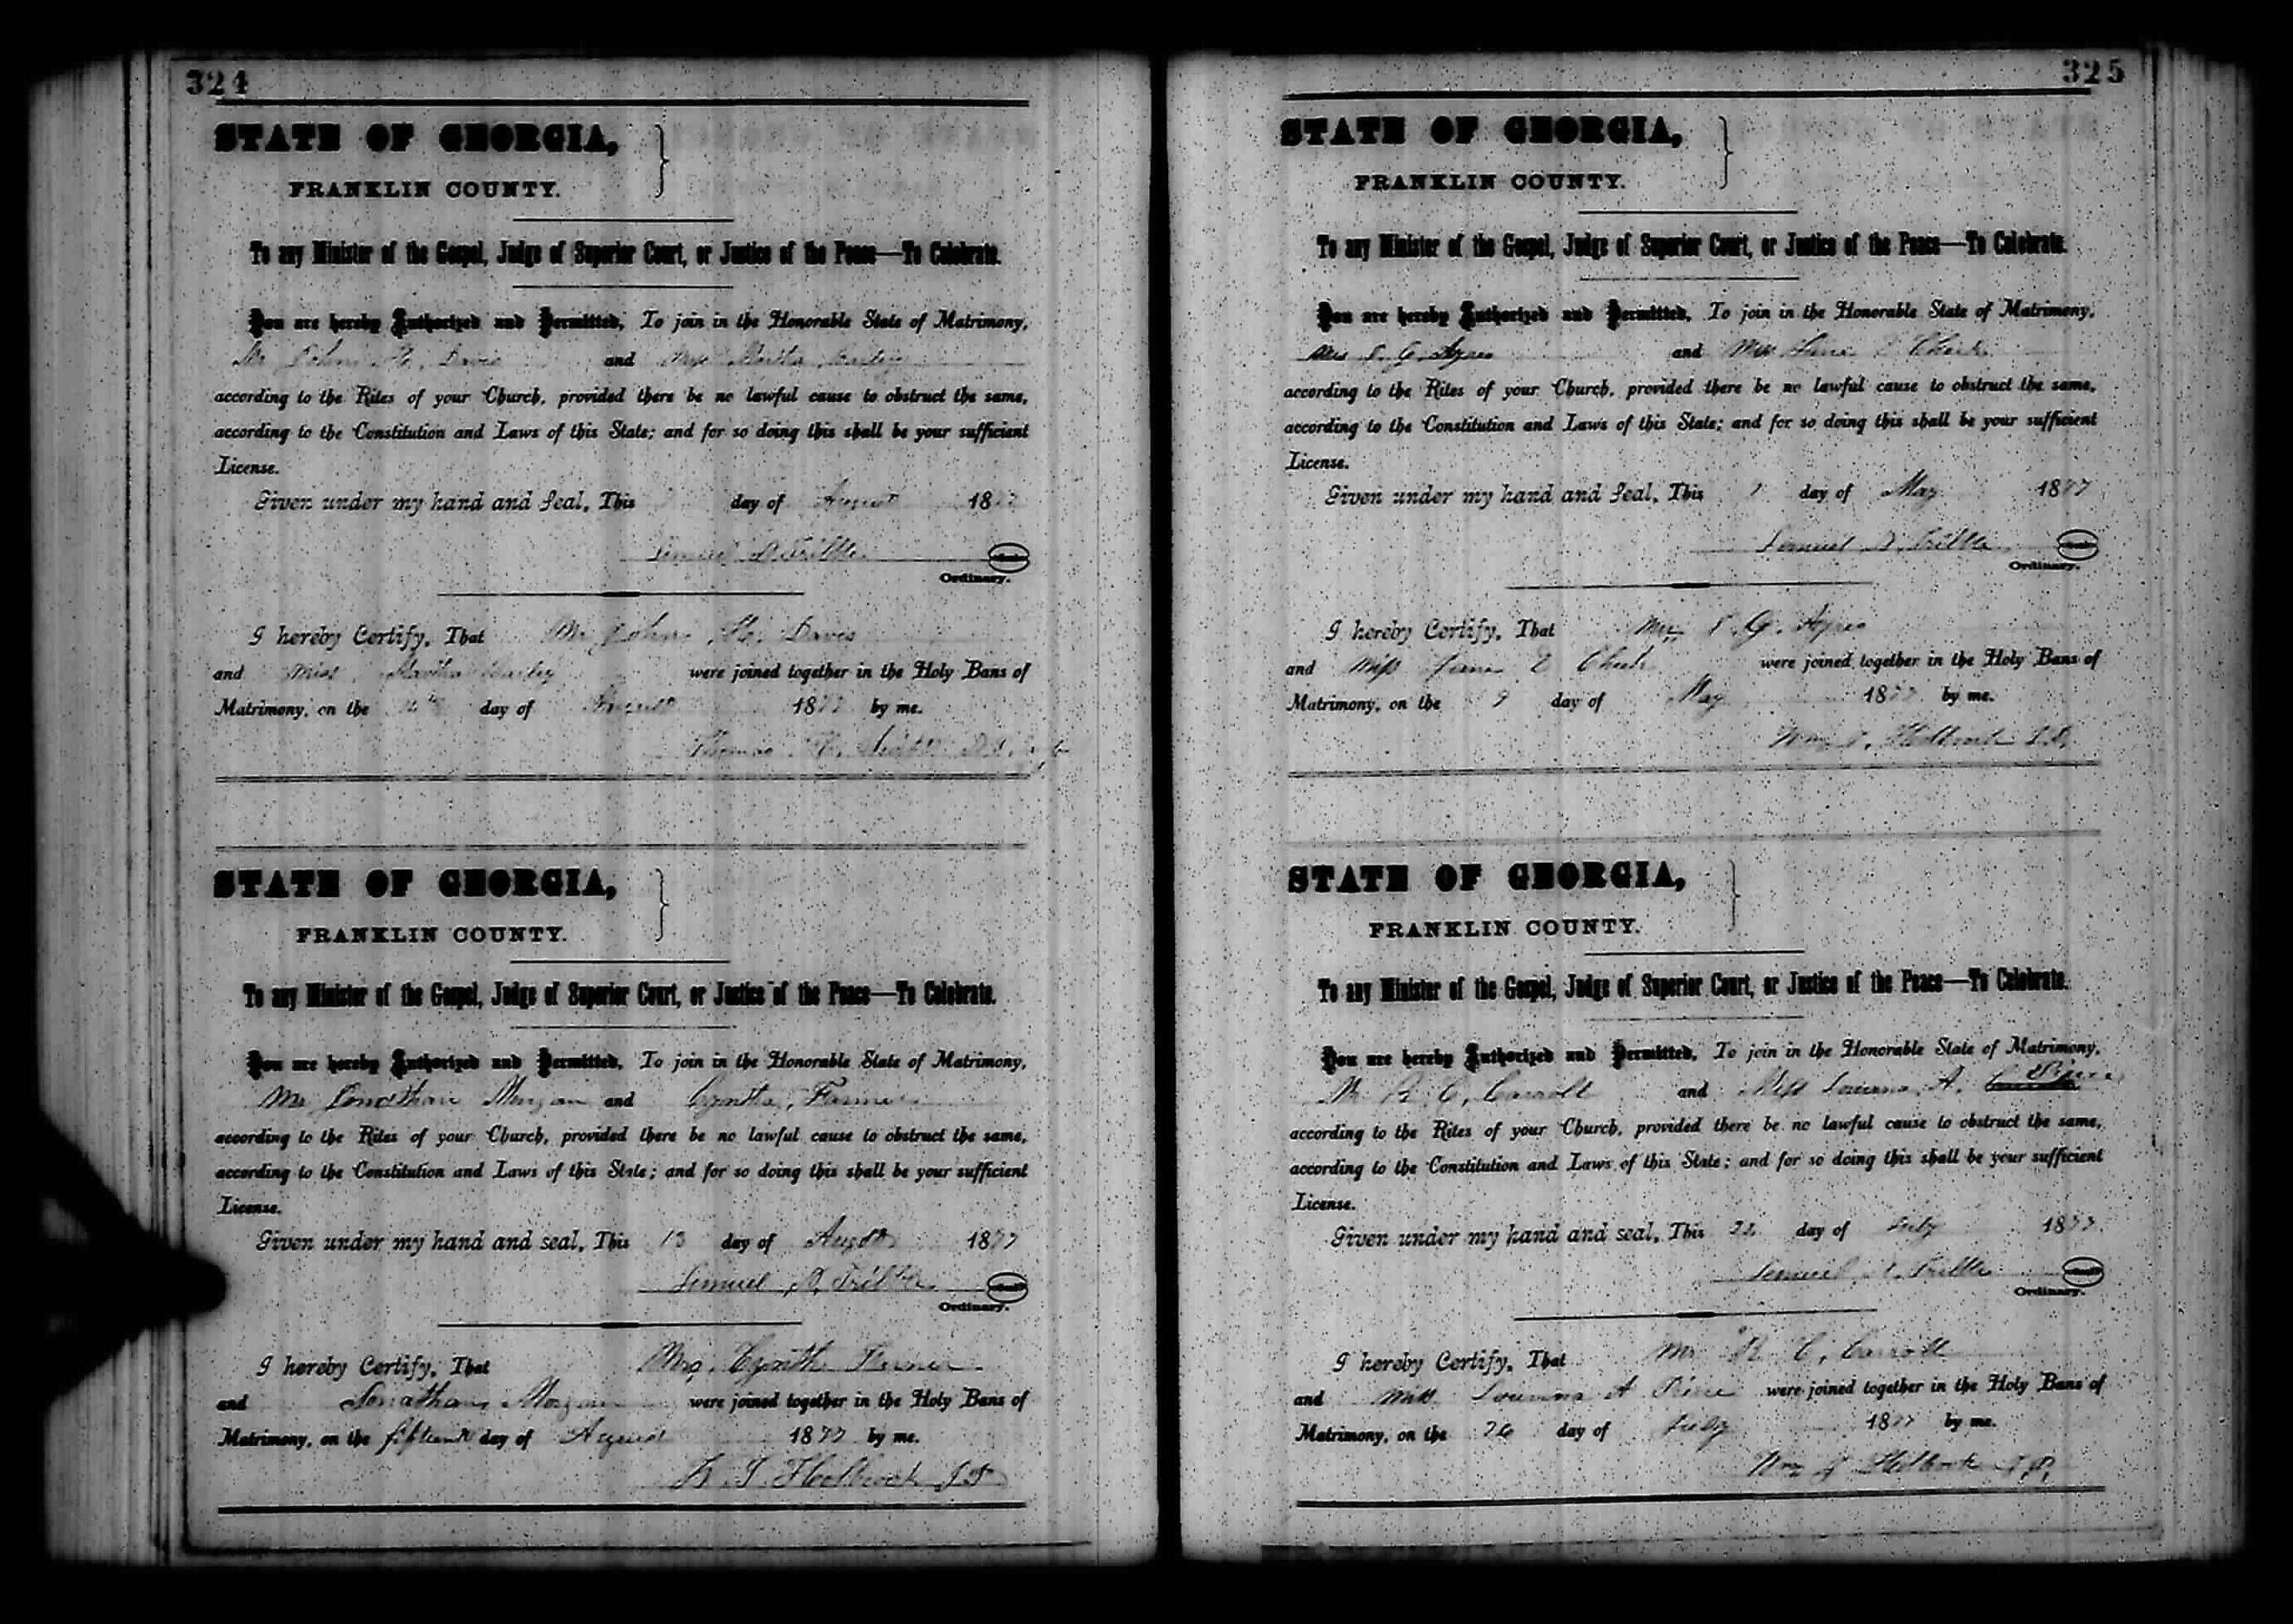 324
STATE OF GEORGIA,
FRANKLIN COUNTY.
To any Minister of the Gospel, Judge of Superior Court, or Justice of the Peace—To Celebrate.
You are hereby Authorized and Permitted, To join in the Honorable State of Matrimony,
Mr John H. Davis and Miss Martha
according to the Rites of your Church, provided there be no lawful cause to obstruct the same,
according to the Constitution and Laws of this State; and for so doing this shall be your sufficient
License.
Given under my hand and Seal, This day of August 1877
Samuel D. Tribble
Ordinary.
I hereby Certify, That Mr John H. Davis
and Miss Martha were joined together in the Holy Bans of
Matrimony, on the day of August 1877 by me.
Thomas
STATE OF GEORGIA,
FRANKLIN COUNTY.
To any Minister of the Gospel, Judge of Superior Court, or Justice of the Peace—To Celebrate.
You are hereby Authorized and Permitted, To join in the Honorable State of Matrimony,
Mr Jonathan Morgan and Cyntha
according to the Rites of your Church, provided there be no lawful cause to obstruct the same,
according to the Constitution and Laws of this State; and for so doing this shall be your sufficient
License.
Given under my hand and seal, This 13 day of August 1877
Samuel D. Tribble
Ordinary.
I hereby Certify, That Mrs. Cyntha
and Jonathan Morgan were joined together in the Holy Bans of
Matrimony, on the fifteenth day of August 1877 by me.
Holbrook J P
325
STATE OF GEORGIA,
FRANKLIN COUNTY.
To any Minister of the Gospel, Judge of Superior Court, or Justice of the Peace—To Celebrate.
You are hereby Authorized and Permitted, To join in the Honorable State of Matrimony,
G. Ayres and Miss Cheek
according to the Rites of your Church, provided there be no lawful cause to obstruct the same,
according to the Constitution and Laws of this State; and for so doing this shall be your sufficient
License.
Given under my hand and Seal, This day of May 1877
Samuel D. Tribble
Ordinary.
I hereby Certify, That Mr G. Ayres
and Miss Cheek were joined together in the Holy Bans of
Matrimony, on the 9 day of May 1877 by me.
Wm J. Holbrook J.P.
STATE OF GEORGIA,
FRANKLIN COUNTY.
To any Minister of the Gospel, Judge of Superior Court, or Justice of the Peace—To Celebrate.
You are hereby Authorized and Permitted, To join in the Honorable State of Matrimony,
Mr R. C. Carroll and Miss A.
according to the Rites of your Church, provided there be no lawful cause to obstruct the same,
according to the Constitution and Laws of this State; and for so doing this shall be your sufficient
License.
Given under my hand and seal, This 22 day of July 1877
Samuel D. Tribble
Ordinary.
I hereby Certify, That Mr R. C. Carroll
and Miss A were joined together in the Holy Bans of
Matrimony, on the 26 day of July 1877 by me.
Wm J Holbrook J.P.